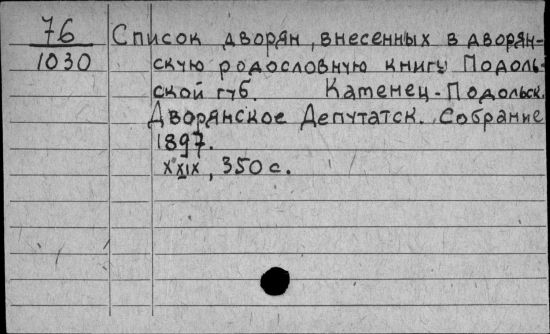 76 Список дворян, внесенных в дворян-
1030 скую родословную книгу Подоль-
ской губ. Каменец-Подольск.
Дворянское Депутатск. Собрание
1897.
XXIX, 350 с.